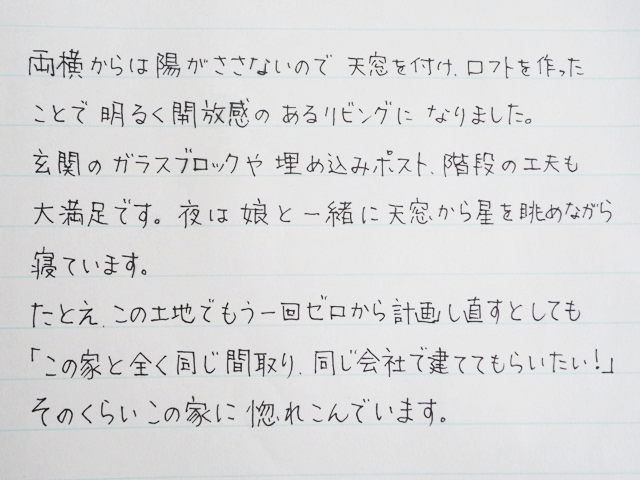 両横からは陽がささないので 天窓を付け、ロフトを作った
ことで 明るく開放感の あるリビングに なりました。
玄関の ガラスブロックや 埋め込みポスト、階段の工夫も
大満足です。夜は 娘と一緒に天窓から星を眺めながら
寝ています。
たとえ、この土地でもう一回ゼロから計画し直すとしても
「この家と全く同じ間取り、同じ会社で建ててもらいたい!」
そのくらい この家に 惚れこんでいます。